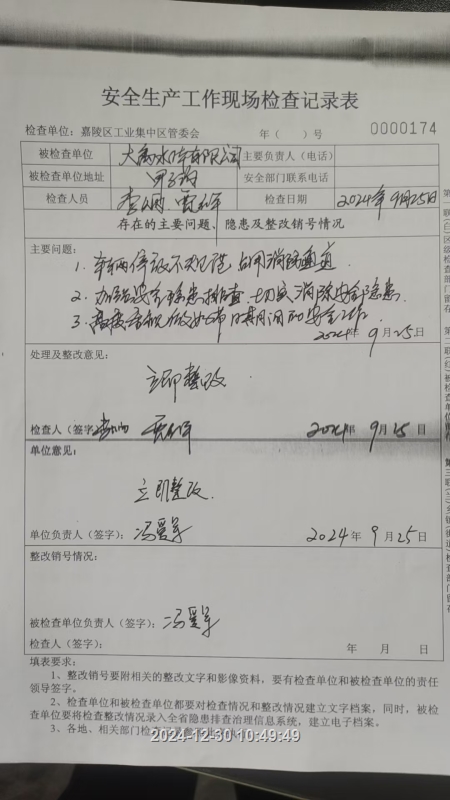 安全生产工作现场检查记录表
检查单位：嘉陵区工业集中区管委会 年（ ）号 0000174
被检查单位 大禹水 有限公司 主要负责人（电话）
被检查单位地址 安全部门联系电话
检查人员 检查日期 2024年9月25日
存在的主要问题、隐患及整改销号情况
主要问题：
1. 车辆停放不规范 占用消防通道
2. 加强安全隐患排查，切实消除安全隐患
3. 国庆 期间的安全工作
2024年9月25日
处理及整改意见：
立即整改
检查人（签字 2024年9月25日
单位意见：
立即整改
单位负责人（签字）： 冯爱军 2024年9月25日
整改销号情况：
被检查单位负责人（签字）： 冯爱军
检查人（签字）： 年 月 日
填表要求：
1、整改销号要附相关的整改文字和影像资料，要有检查单位和被检查单位的责任
领导签字。
2、检查单位和被检查单位都要对检查情况和整改情况建立文字档案，同时，被检
查单位要将检查整改情况录入全省隐患排查治理信息系统，建立电子档案。
3、各地、相关部门检查
2024-12-30 10:49:49